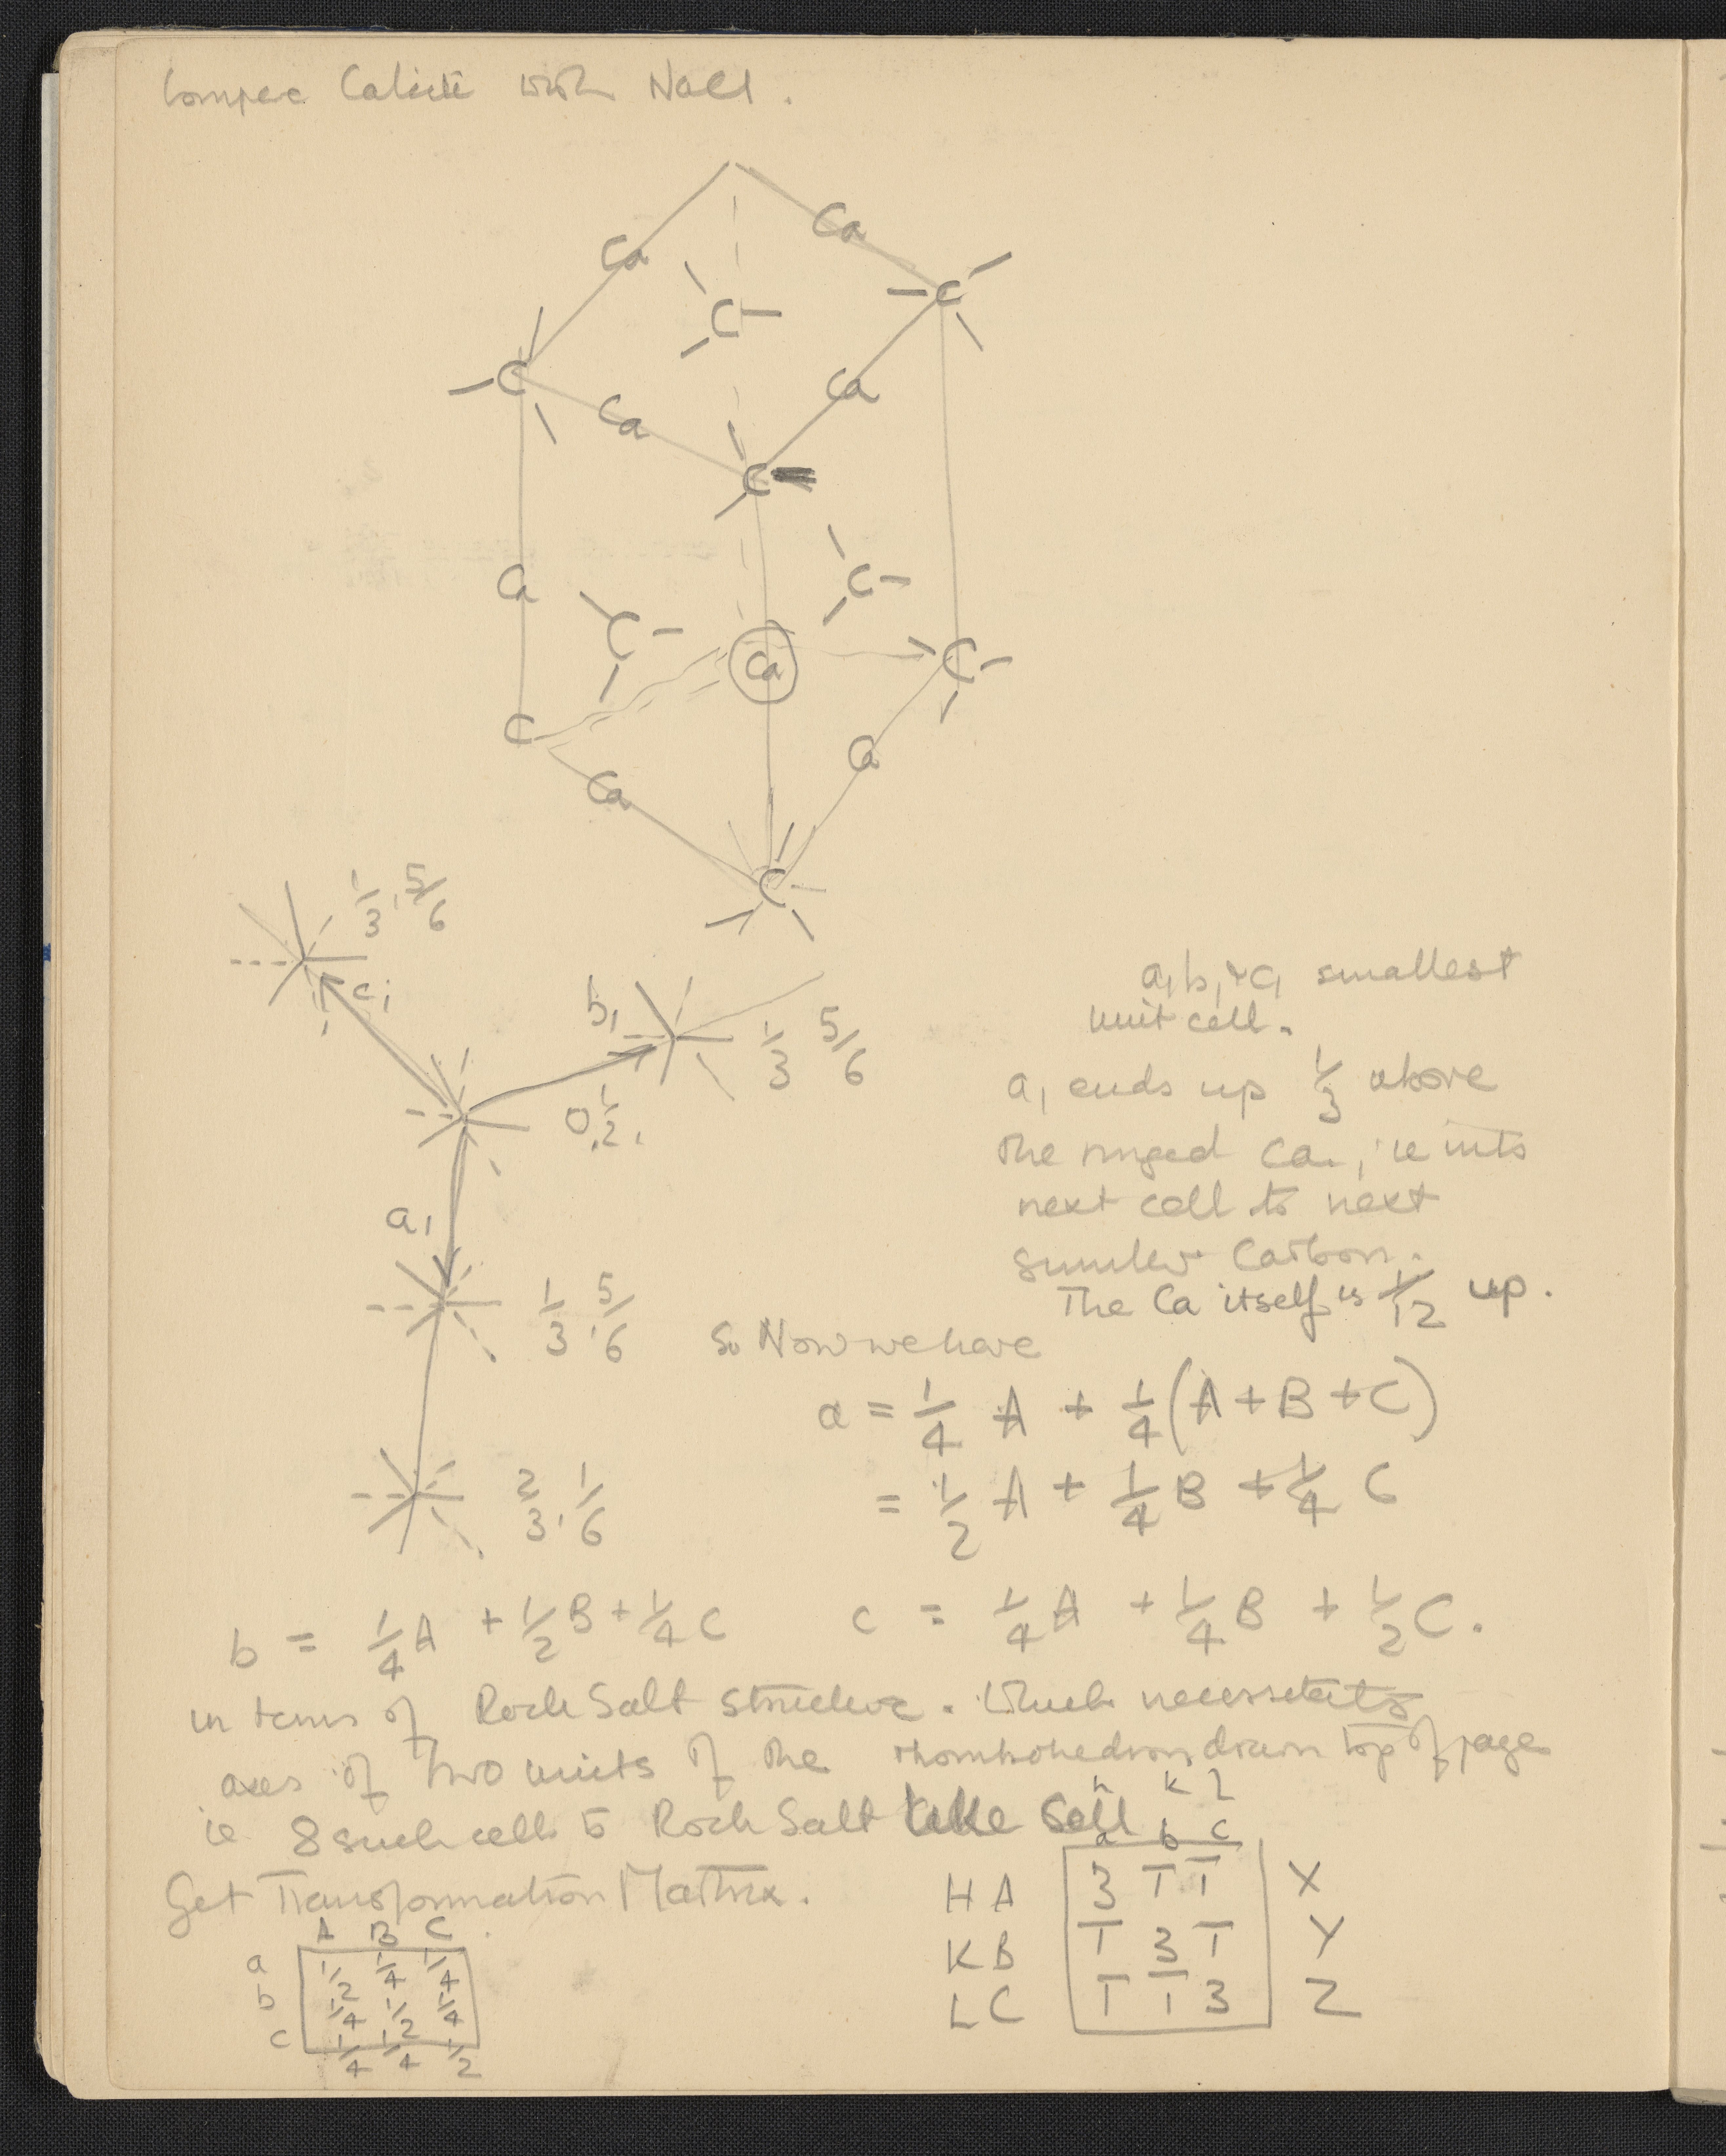 Compare Calcite with NaCl.
Ca
Ca
C
C
C
Ca
Ca
C
Ca
C
C
Ca
C
C
Ca
Ca
C
1/3, 5/6
c₁
b₁
1/3 5/6
0, 1/2,
a₁
1/3, 5/6
2/3, 1/6
a₁ b₁ & c₁ smallest
unit cell.
a₁ ends up 1/3 above
the ringed Ca, ie into
next cell to next
similar Carbon.
The Ca itself is 1/12 up.
So Now we have
a = 1/4 A + 1/4 (A + B + C)
= 1/2 A + 1/4 B + 1/4 C
b = 1/4 A + 1/2 B + 1/4 C c = 1/4 A + 1/4 B + 1/2 C.
in terms of Rock Salt structure. Which necessitates
axes of two units of the rhombohedron drawn top of page
ie 8 such cells to Rock Salt like Cell
Get Transformation Matrix.
A B C
a 1/2 1/4 1/4
b 1/4 1/2 1/4
c 1/4 1/4 1/2
h k l
a b c
H A 3 1̅ 1̅ X
K B 1̅ 3 1̅ Y
L C 1̅ 1̅ 3 Z